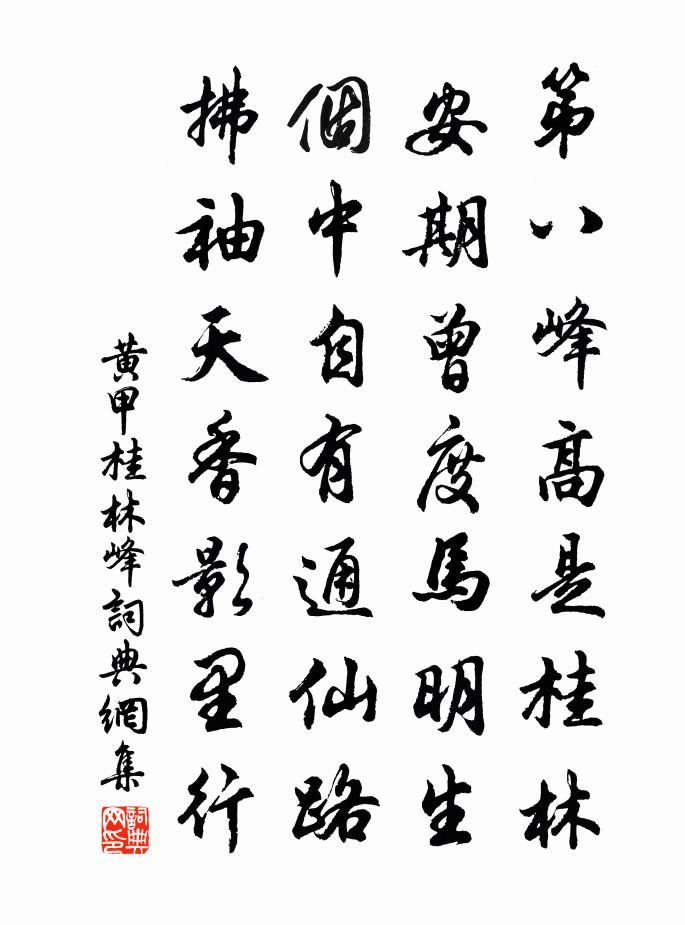 第八峰高是桂林
安期曾度馬明生
個中自有通仙路
拂袖天香影里行
黃甲桂林峰詞典網集
詞典网印